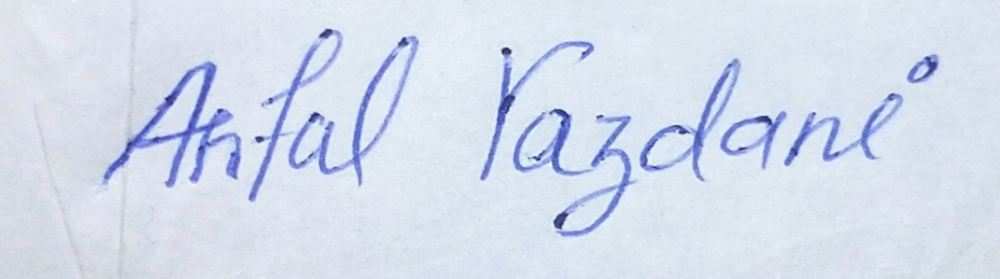 Anfal Yazdani